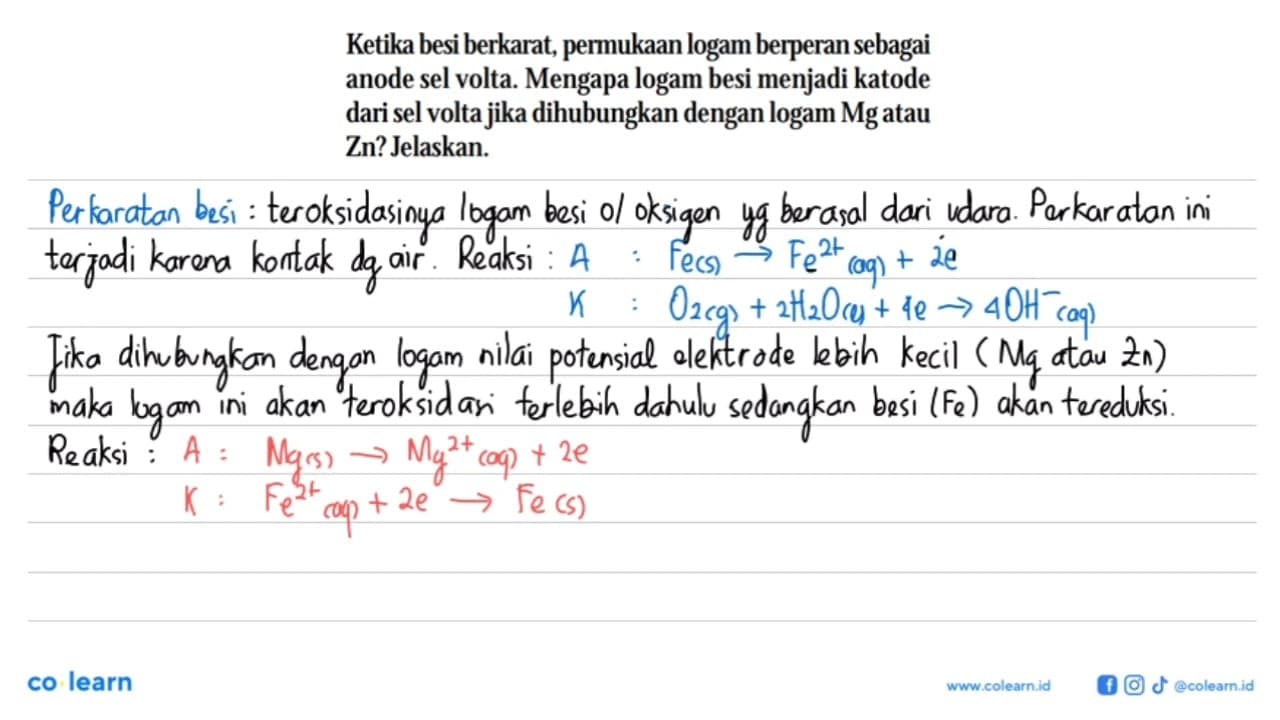 Ketika besi berkarat, permukaan logam berperan sebagai
anode sel volta. Mengapa logam besi menjadi katode
dari sel volta jika dihubungkan dengan logam Mg atau
Zn? Jelaskan.
Perkaratan besi : teroksidasinya logam besi o/ oksigen yg berasal dari udara. Perkaratan ini
terjadi karena kontak dg air. Reaksi : A : Fe(s) → Fe²⁺(aq) + 2e
K : O₂(g) + 2H₂O(l) + 4e → 4OH⁻(aq)
Jika dihubungkan dengan logam nilai potensial elektrode lebih kecil (Mg atau Zn)
maka logam ini akan teroksidasi terlebih dahulu sedangkan besi (Fe) akan tereduksi.
Reaksi : A : Mg(s) → Mg²⁺(aq) + 2e
K : Fe²⁺(aq) + 2e → Fe (s)
co learn www.colearn.id @colearn.id